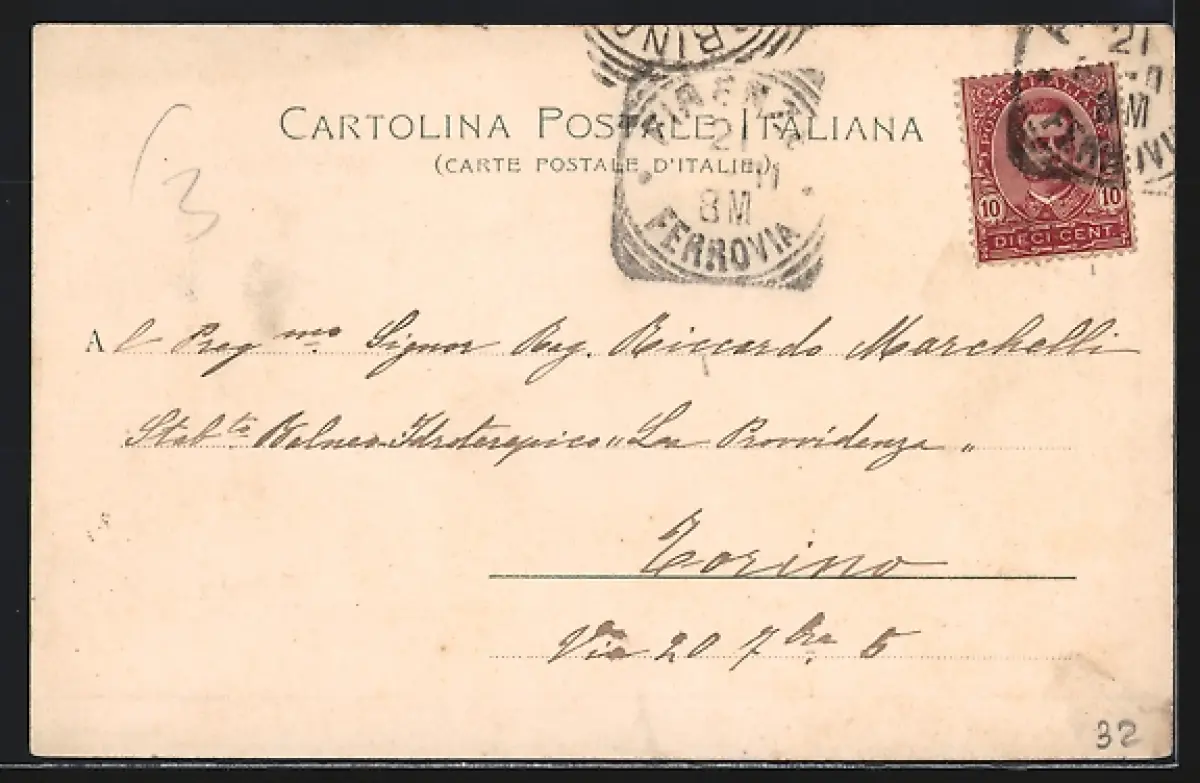 CARTOLINA POSTALE ITALIANA
(CARTE POSTALE D'ITALIE.)
RINO
FIRENZE
21
11
8M
FERROVIA
21
8M
FERROVIA
POSTE ITALIANE
10 10
DIECI CENT.
3
Al Preg mo. Signor Rag. Riccardo Marchelli
Stab to Balneo-Idroterapico „La Provvidenza„
Torino
Via 20 7bre. 5
32